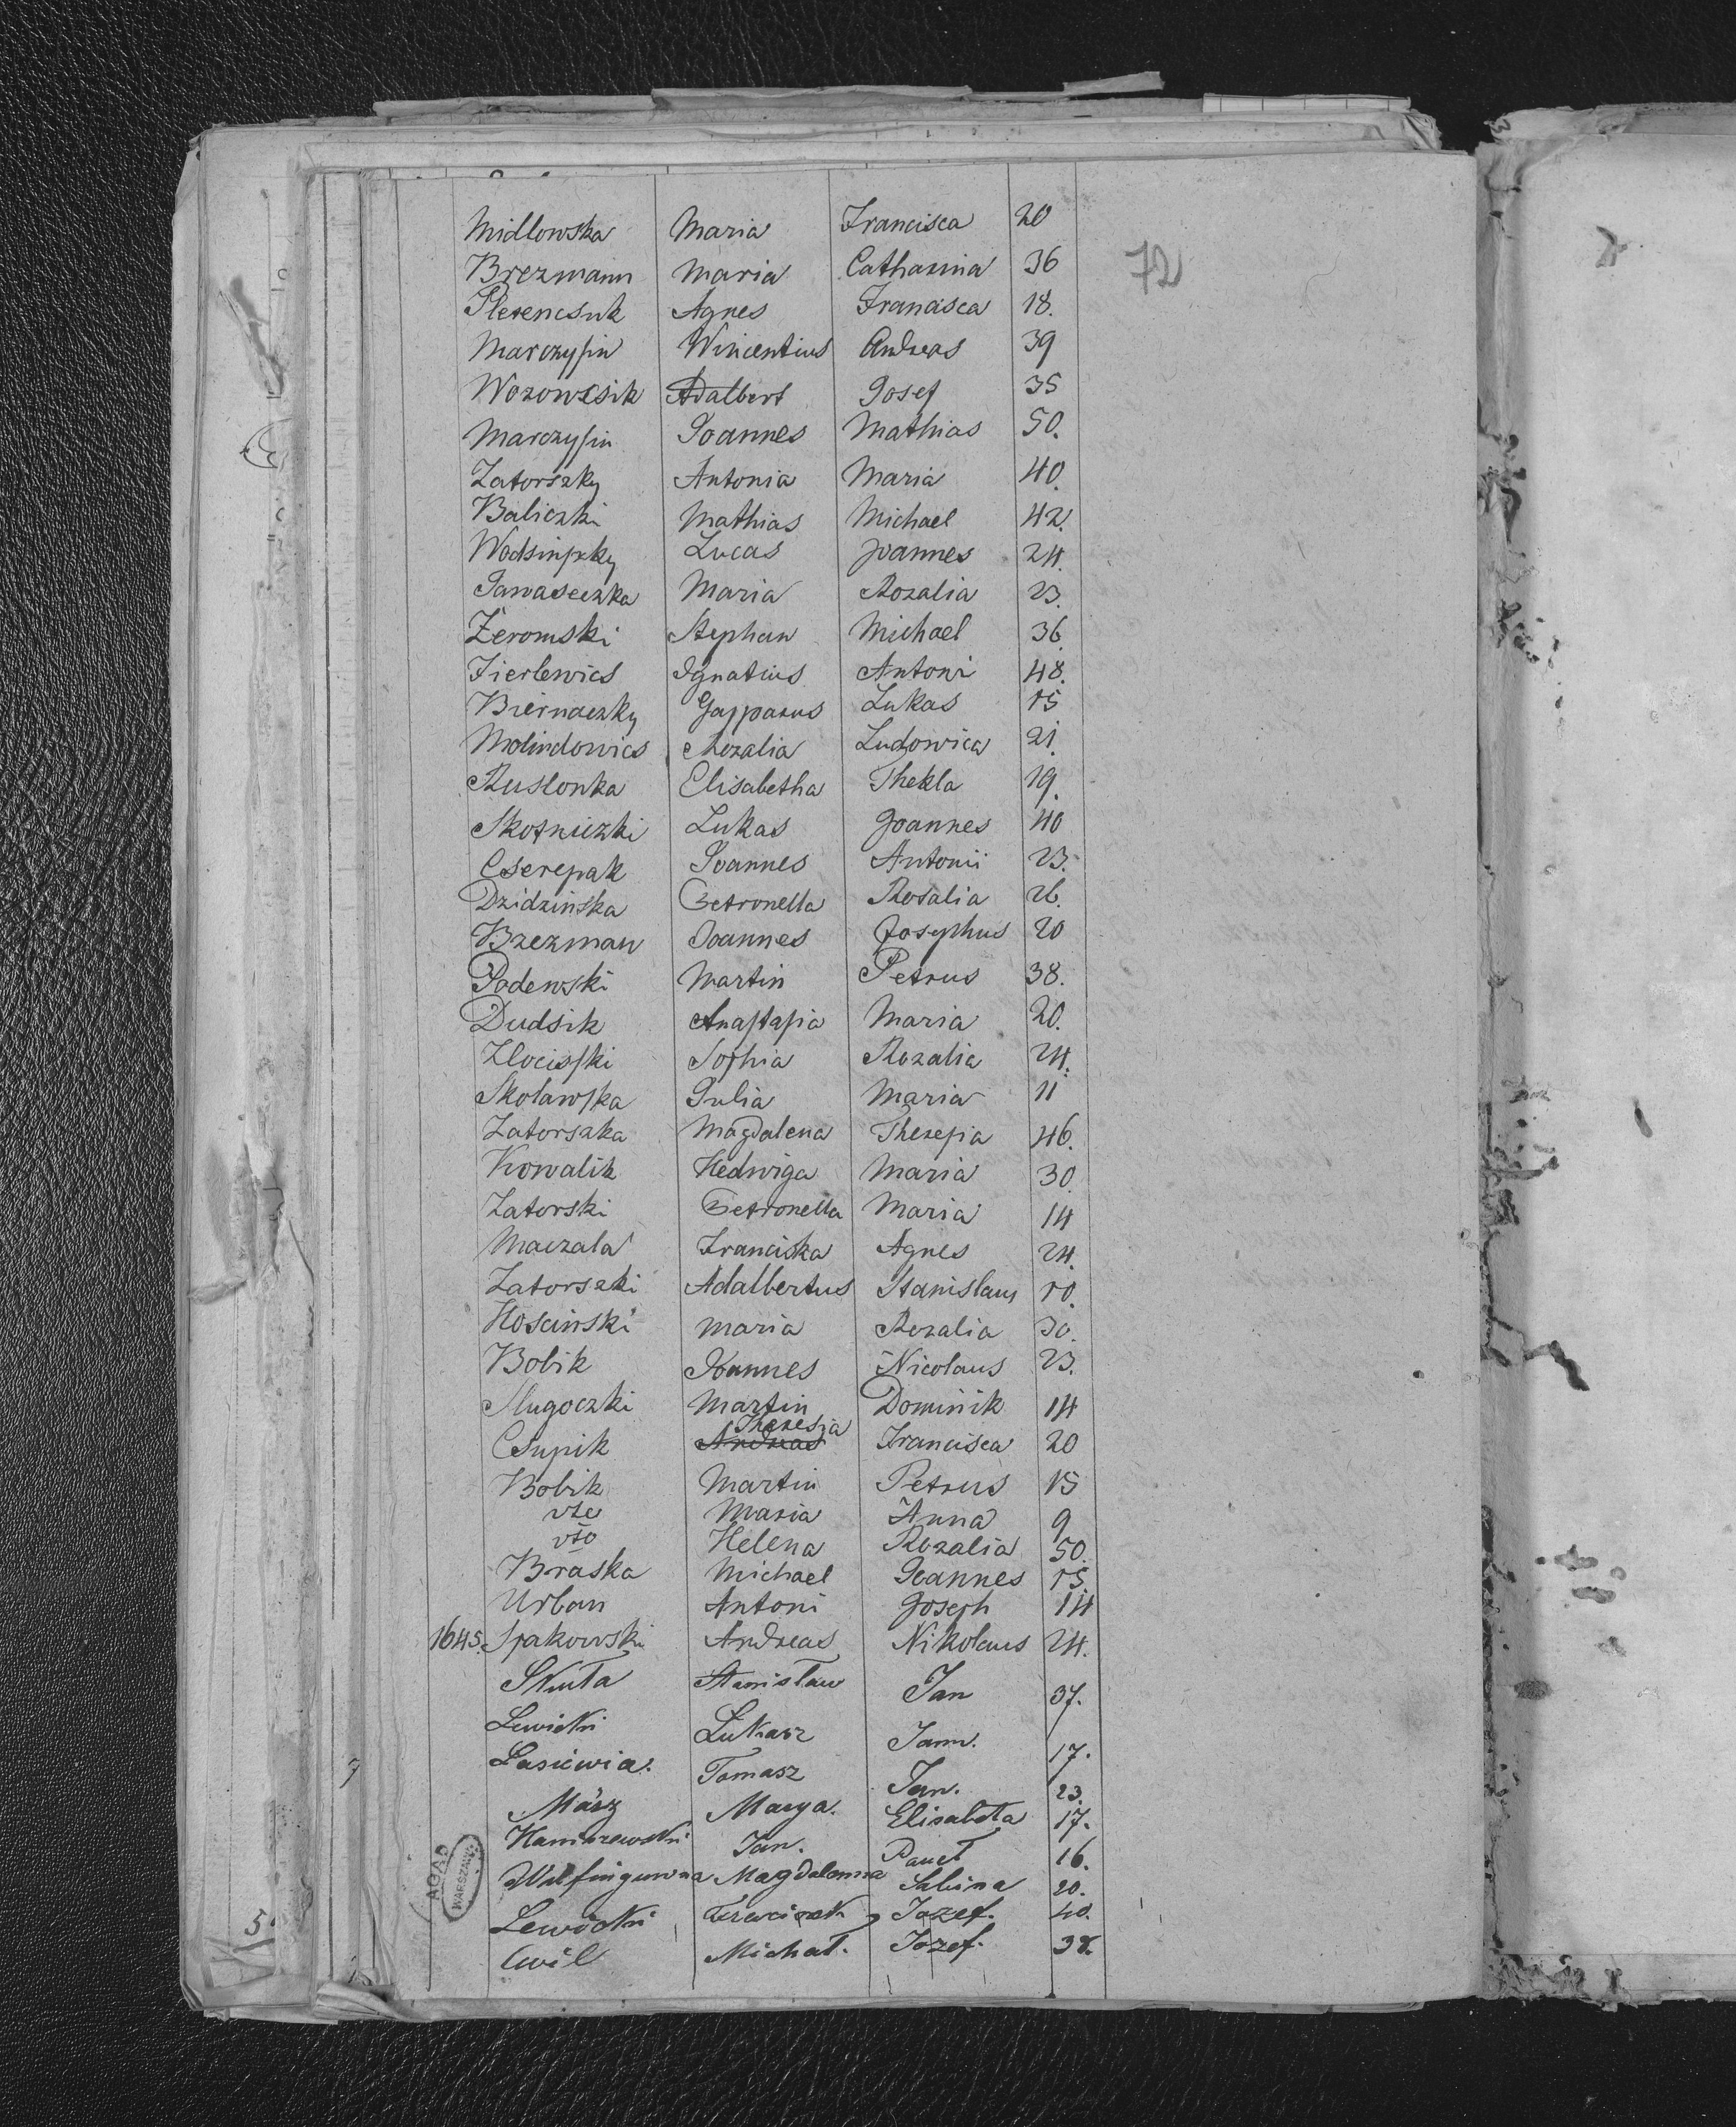 Midlowska Maria Francisca 20
Brezmann Maria Catharina 36
72
Pletencsuk Agnes Francisca 18.
Marczysin Wincentius Andreas 39
Wozowcsik Adalbert Josef 35
Marczysin Joannes Mathias 50.
Zatorszky Antonia Maria 40.
Baliczki Mathias Michael 42.
Wodsinszky Lucas Joannes 24.
Maria Rozalia 23.
Żeromski Stephan Michael 36
Fierlewics Ignatius Antoni 48.
Biernaczky Gasparus Lukas 15
Molindowics Rozalia Ludowica 21.
Ruslonka Elisabetha Thekla 19.
Skotniczki Lukas Joannes 40
Cserepak Joannes Antonii 23.
Dzidzinska Petronella Rosalia 26.
Brezman Joannes Josephus 20
Podewski Martin Petrus 38.
Dudsik Anastasia Maria 20.
Zlocisski Sophia Rozalia 24.
Skolawska Julia Maria 11
Zatorszka Magdalena Theresia 46.
Kowalik Hedwiga Maria 30.
Zatorski Petronella Maria 14
Maczala Franciszka Agnes 24.
Zatorszki Adalbertus Stanislaus 10.
Hoscinski Maria Rozalia 30.
Bobik Joannes Nicolaus 23.
Slugoczki Martin Dominik 14
Theresia
Csupik Andreas Francisca 20
Bobik Martin Petrus 15
Maria Anna 9
Helena Rozalia 50.
Braska Michael Joannes 15.
Urban Antoni Joseph 14
1645. Spakowski Andreas Nikolaus 24.
Skuta Stanisław Jan 37.
Lewicki Łukasz Jann. 17.
Tomasz Jan. 23.
März Marya. Elisabeta 17.
Jan. Paweł 16.
Magdalenna Sabina 20.
Lewicki Jozef. 40.
Cwil Michał. Jozef. 38.
AGAD
WARSZAWA
5